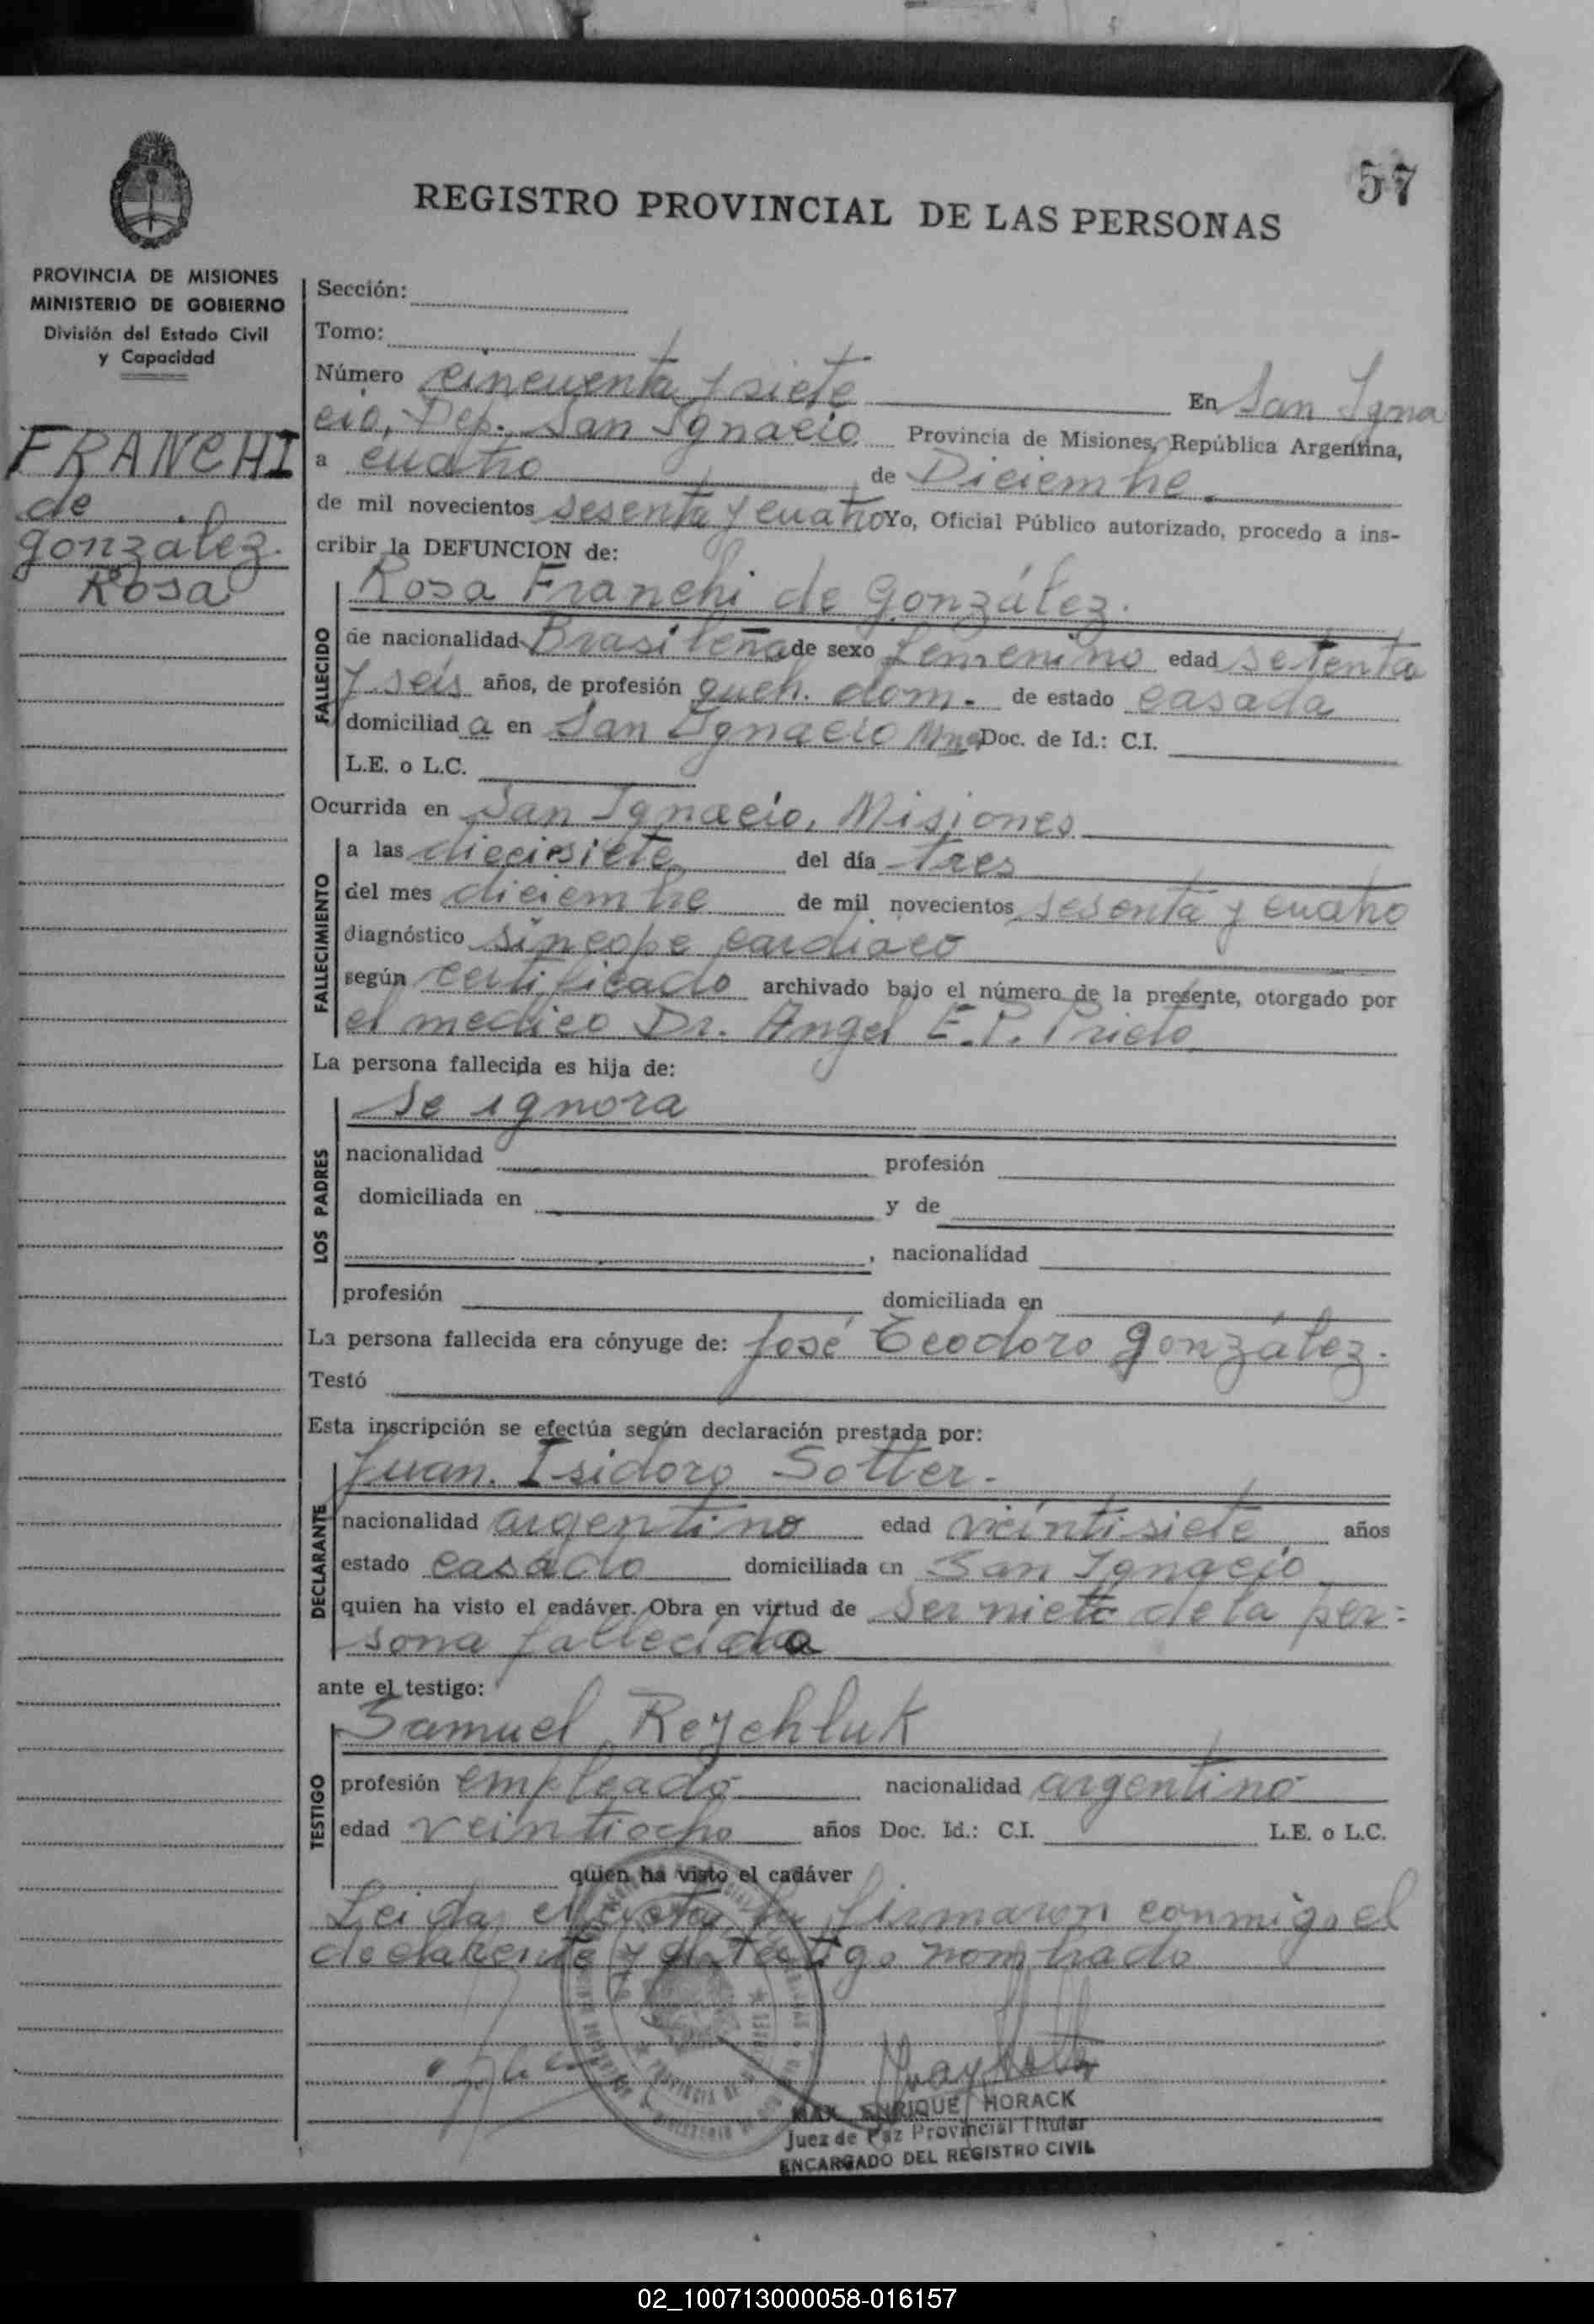 57
REGISTRO PROVINCIAL DE LAS PERSONAS
PROVINCIA DE MISIONES
MINISTERIO DE GOBIERNO
División del Estado Civil
y Capacidad
FRANCHI
de
González.
Rosa
Sección:
Tomo:
Número cincuenta y siete En San Igna
cio, Dep. San Ignacio Provincia de Misiones, República Argentina,
a cuatro de Diciembre.
de mil novecientos sesenta y cuatro Yo, Oficial Público autorizado, procedo a ins-
cribir la DEFUNCION de:
FALLECIDO
Rosa Franchi de González.
de nacionalidad Brasileña de sexo femenino edad setenta
y seis años, de profesión queh. dom. de estado casada
domiciliad a en San Ignacio Mnes Doc. de Id.: C.I.
L.E. o L.C.
Ocurrida en San Ignacio, Misiones
FALLECIMIENTO
a las diecisiete del día tres
del mes diciembre de mil novecientos sesenta y cuatro
diagnóstico síncope cardiaco
según certificado archivado bajo el número de la presente, otorgado por
el medico Dr. Angel E.P. Prieto
La persona fallecida es hija de:
LOS PADRES
Se ignora
nacionalidad profesión
domiciliada en y de
, nacionalidad
profesión domiciliada en
La persona fallecida era cónyuge de: José Teodoro González.
Testó
Esta inscripción se efectúa según declaración prestada por:
DECLARANTE
Juan. Isidoro Sotter.
nacionalidad argentino edad veintisiete años
estado casado domiciliada en San Ignacio
quien ha visto el cadáver. Obra en virtud de ser nieto de la per=
sona fallecida
ante el testigo:
TESTIGO
Samuel Reychluk
profesión empleado nacionalidad argentino
edad veintiocho años Doc. Id.: C.I. L.E. o L.C.
quien ha visto el cadáver
Leida el acta la firmaron conmigo el
declarente y el testigo nombrado
MAX ENRIQUE HORACK
Juez de Paz Provincial Titular
ENCARGADO DEL REGISTRO CIVIL
02_100713000058-016157